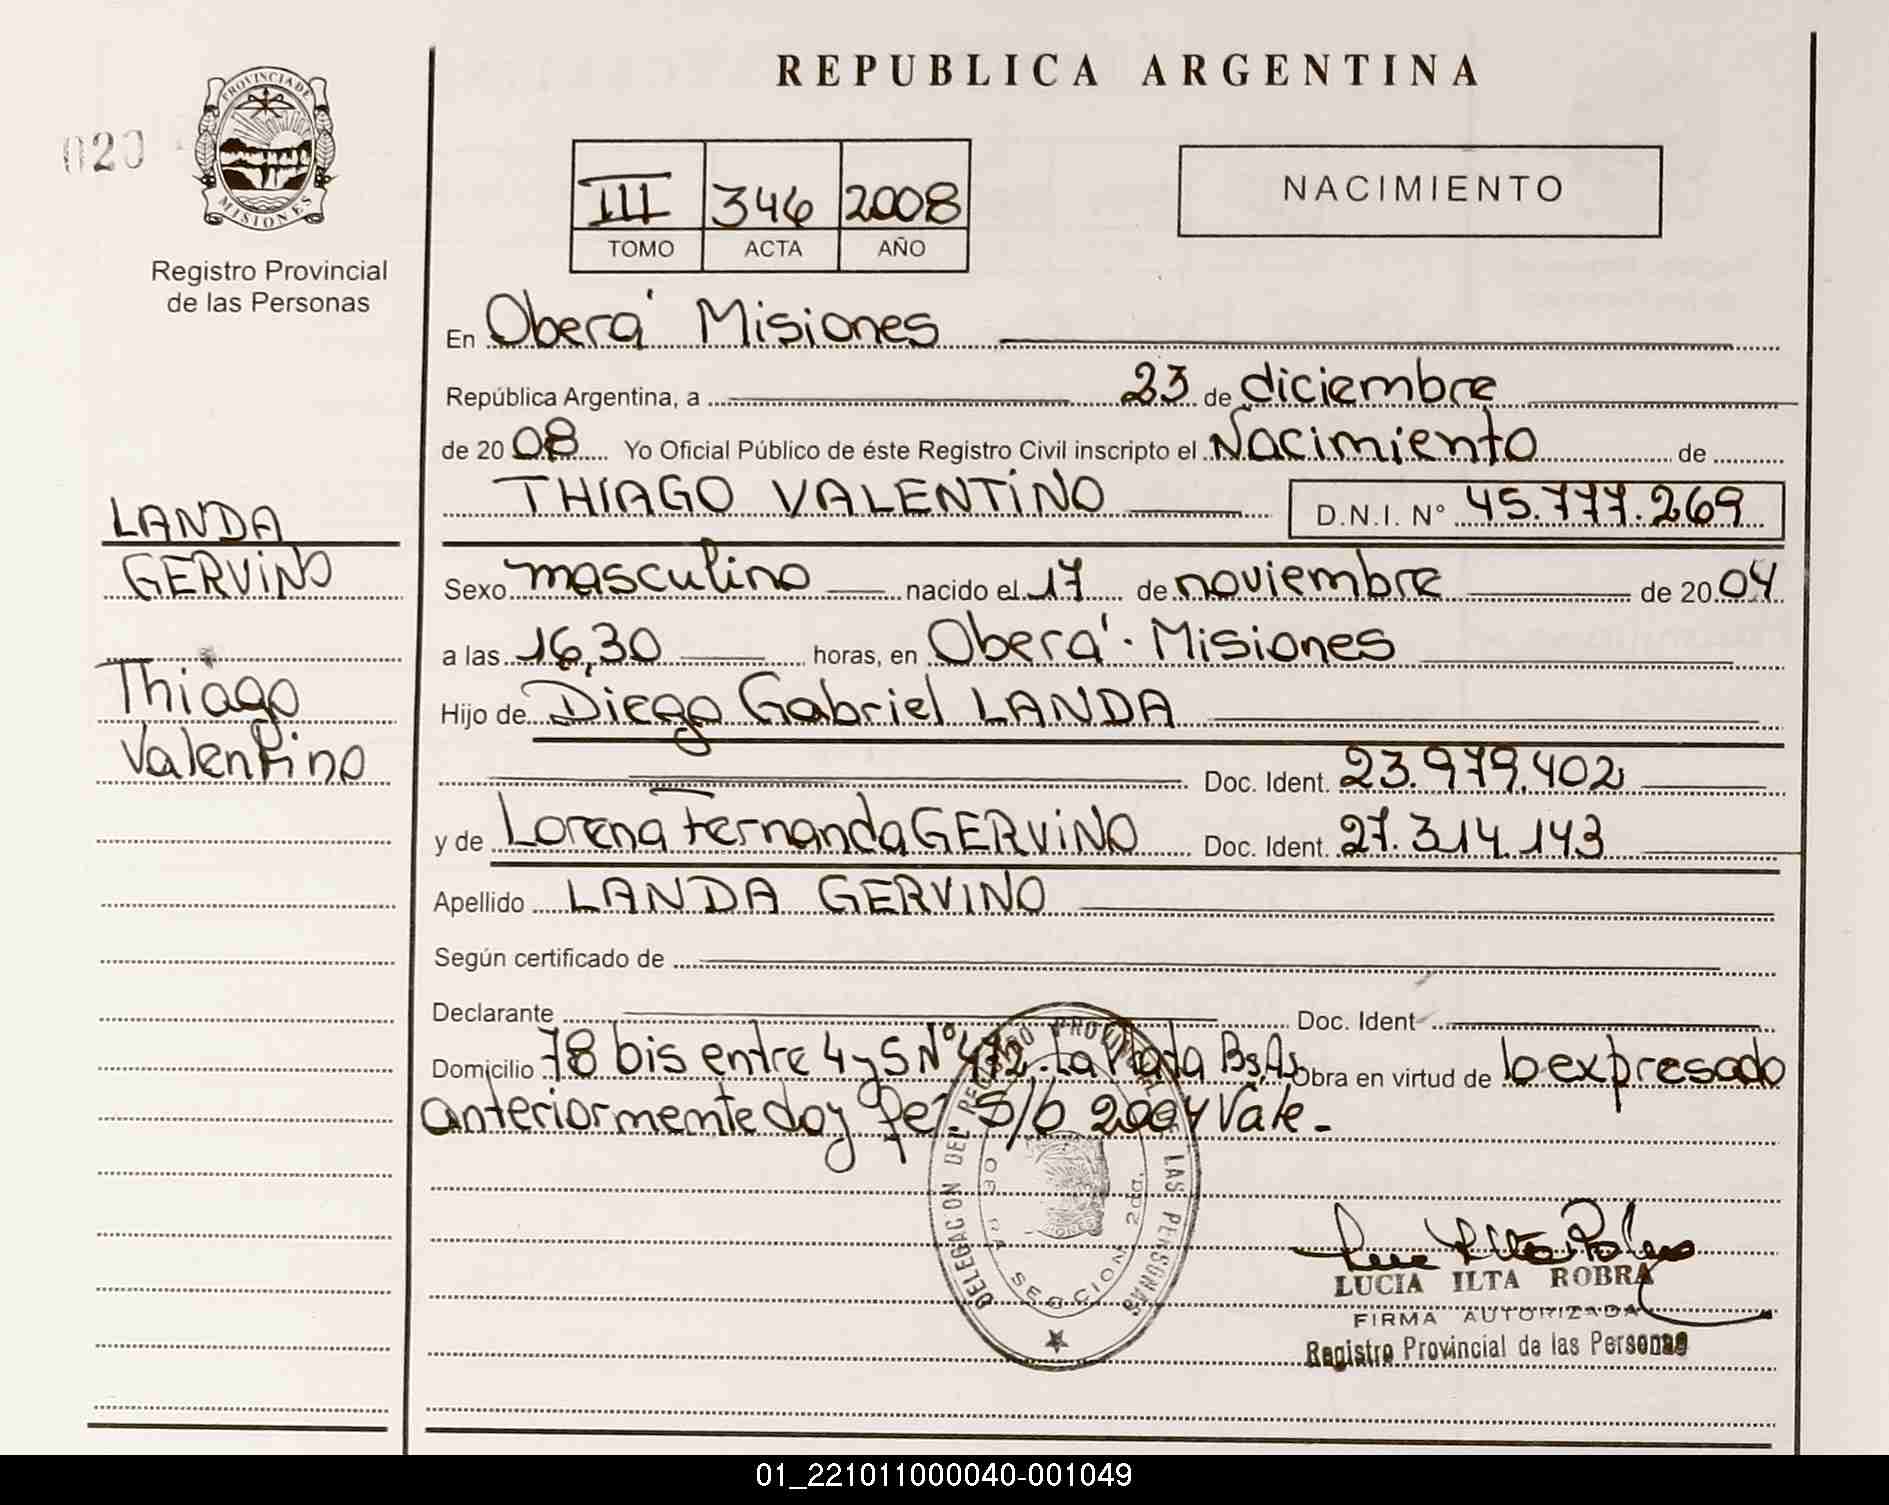 REPUBLICA ARGENTINA
PROVINCIA DE
MISIONES
020
Registro Provincial
de las Personas
III 346 2008
TOMO ACTA AÑO
NACIMIENTO
En Oberá Misiones
República Argentina, a 23 de diciembre
de 2008 Yo Oficial Público de éste Registro Civil inscripto el Nacimiento de
THIAGO VALENTINO D.N.I. N° 45.777.269
LANDA
GERVINO
Thiago
Valentino
Sexo masculino nacido el 17 de noviembre de 2004
a las 16,30 horas, en Oberá - Misiones
Hijo de Diego Gabriel LANDA
Doc. Ident. 23.979.402
y de Lorena Fernanda GERVINO Doc. Ident. 27.314.143
Apellido LANDA GERVINO
Según certificado de
Declarante Doc. Ident
Domicilio 78 bis entre 4 y 5 N° 472. La Plata Bs.As Obra en virtud de lo expresado
anteriormente doy fe. S/b 2004 Vale.-
DELEGACION DEL REGISTRO PROVINCIAL DE LAS PERSONAS
SECCION 2da.
LUCIA ILTA ROBRA
FIRMA AUTORIZADA
Registro Provincial de las Personas
01_221011000040-001049